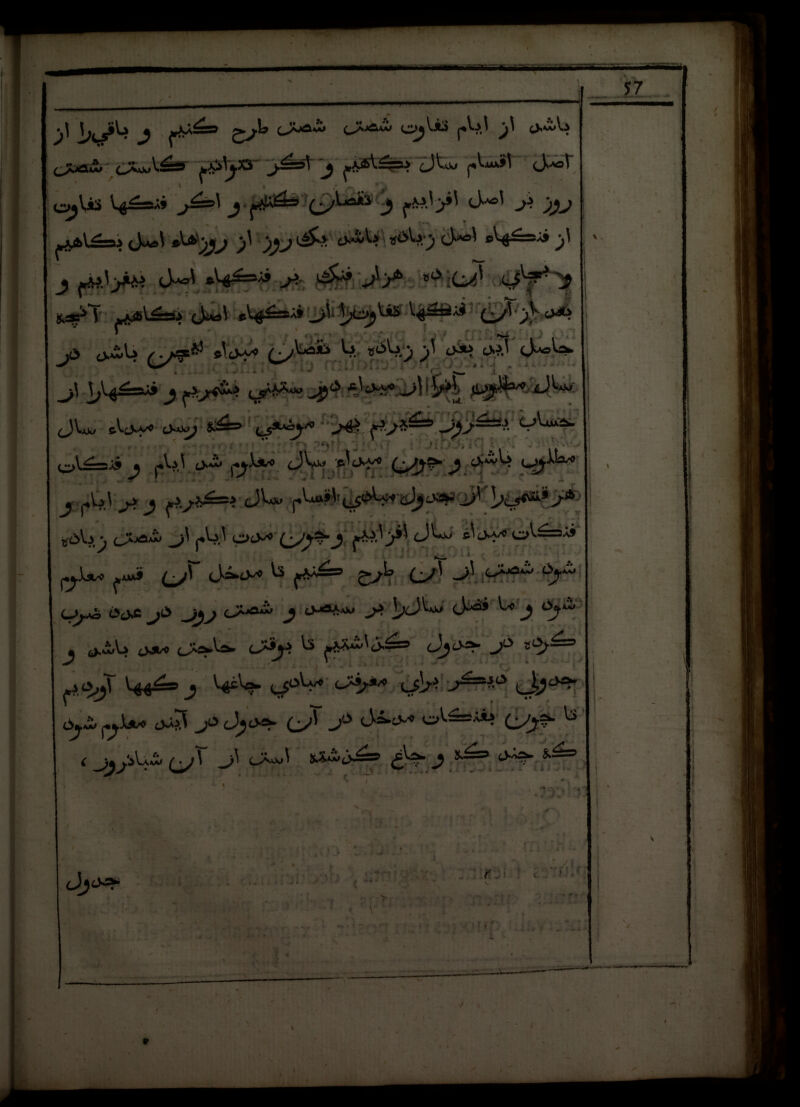 57
باشد از ایام تفاوت شصت شصت طرح کنیم و باقیرا از
اصل اقسام سال بکاهیم و اگر نتوانیم کاست شصت
روز بر اصل افزاییم و نقصان کنیم و اگر فنکها تفاوت
از فنکهاء اصل زیاده باشد یک روز از روزهاء اصل بکاهیم
و بجای آن ده هزار فنک بر فنکهاء اصل بیفزاییم و
بعد از آن فنکها تفاوترا از فنکهاء اصل بکاهیم آنچه
حاصل آید بعد از زیاده یا نقصان مبداء باشد در
سال مطلوب آنرا از مبداء دور ستینی بشمریم و فنکهارا از
حساب بیکروز گیریم بهر موضعی که رسد مبداء سال
مطلوب باشد و چون مبداء سال معلوم شد ایام و فنکات
هر قسمیرا از جدول مبادی اقسام سال بگیریم و بر ایام و
فنکات مبداء سال افزاییم و چون مدت ایام از شصت زیاده
شود شصت از آن طرح کنیم تا مدخل آن قسم معلوم
شود و ما فضل سالرا بر سیصد و شصت روز در عدد ضرب
کرده در جدول گذاشتیم تا بوقت حاجت معد باشد و
جدولی دیگر برای معرفت مبادی جاغها و کهها آوردیم
تا چون بفنکات مدخل در آن جدول در آیند معلوم شود
که چند که و جاغ گذشته است از آن شباذروز ،
جدول